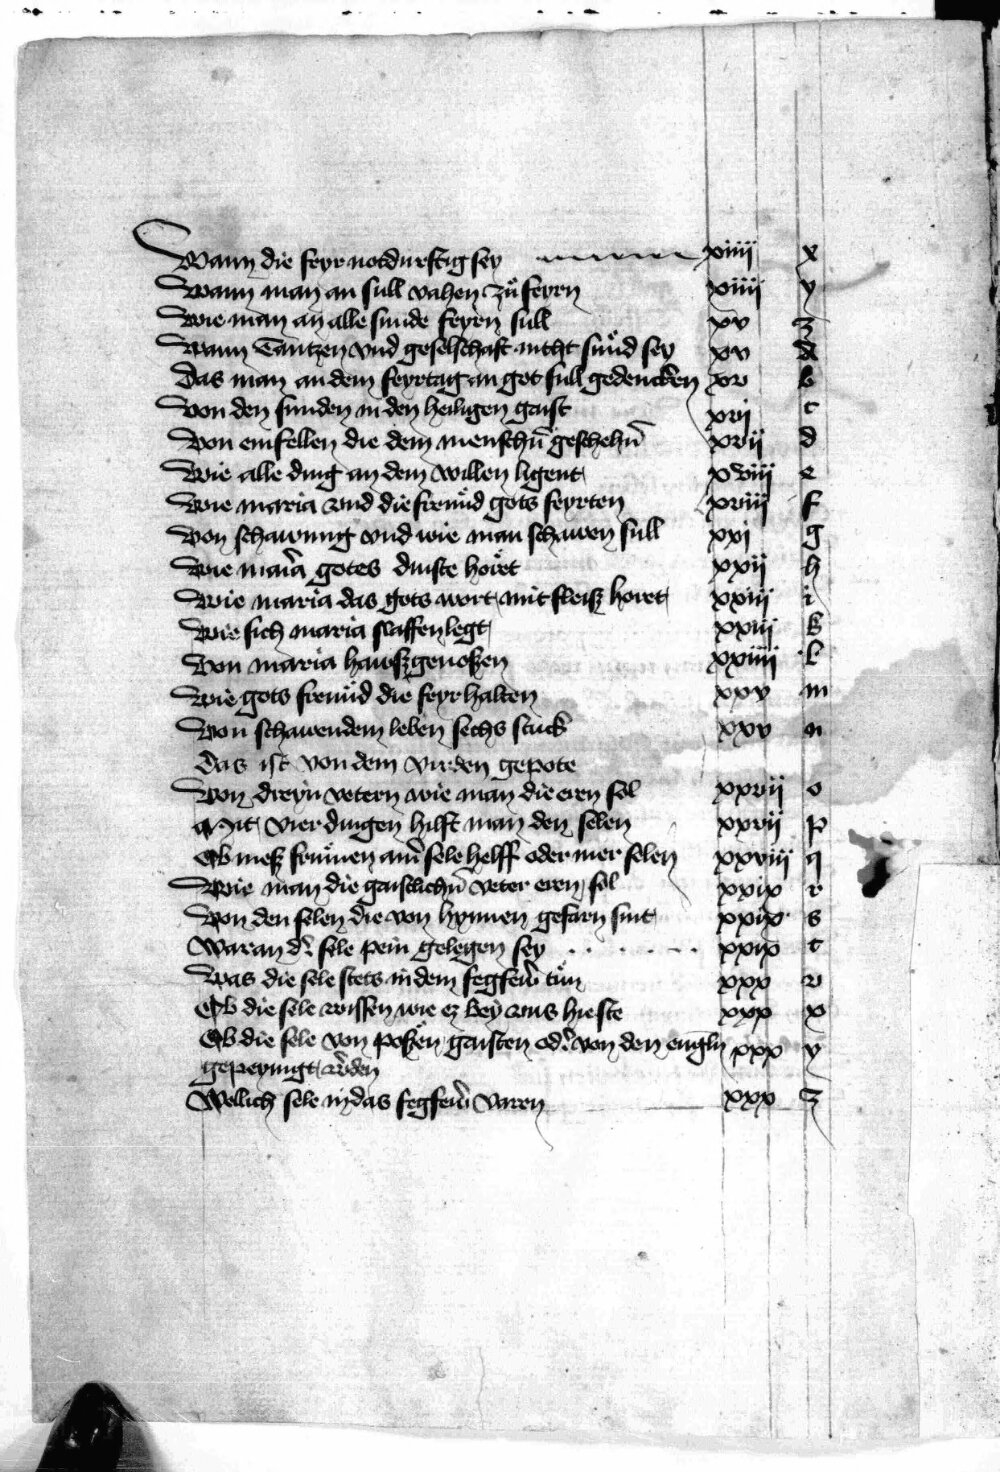 Wann die feyr notdurftig sey xiiii x
Wann man an sull vahen zů feyrn xiiii y
Wie man an alle sunde feyrn sull xv z
Wann Tantzen vnd geselschaft nicht sünd sey xv a
Das man an dem feyrtag an got sull gedencken xv b
Von den sunden in den heiligen gaist xvij c
Von einfellen die dem menschn̄ geschehn̄ xvij d
Wie alle ding an dem willen ligent xviij e
Wie maria vnd die freund gots feyrten xviij f
Von schawung vnd wie man schawen sull xxi g
Wie mar̃a gotes dinste höret xxij h
Wie maria das gots wort mit fleisz horet xxiij i
Wie sich maria slaffen legt xxiij k
Von maria hawszgenoszen xxiiij l
Wie gots freund die feyr halten xxv m
Von schawendem leben sechs stuck xxv n
Das ist von dem virden gepote
Von dreyn vetern wie man die eren sol xxvij o
Mit vier dingen hilft man den selen xxvij p
Ob mesz frumen ainer sele helff oder mer selen xxviij q
Wie man die gaistlichn̄ veter eren sol xxix r
Von den selen die von hynnen gefarn sint xxix s
Waran d' sele pein gelegen sey xxix t
Was die sele stets in dem fegfew̃ tün xxx v
Ob die sele wissen wie ez bey vns hie ste xxx x
Ob die sele von poszen gaisten od' von den engln xxx y
gepeynigt w̃den
Wellich sele in das fegfew̃ varen xxx z